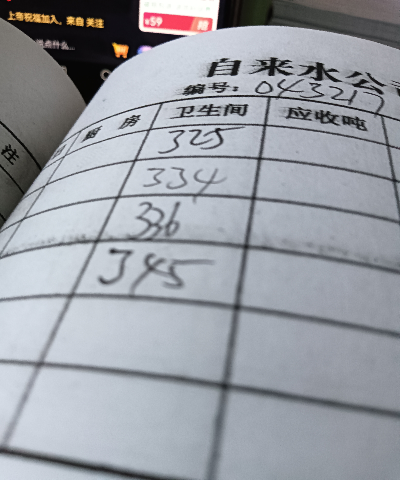 上帝祝福加入,来自 关注
¥59
抢
说点什么...
自来水公
编号: 043217
厨房 卫生间 应收吨
325
334
336
345
注